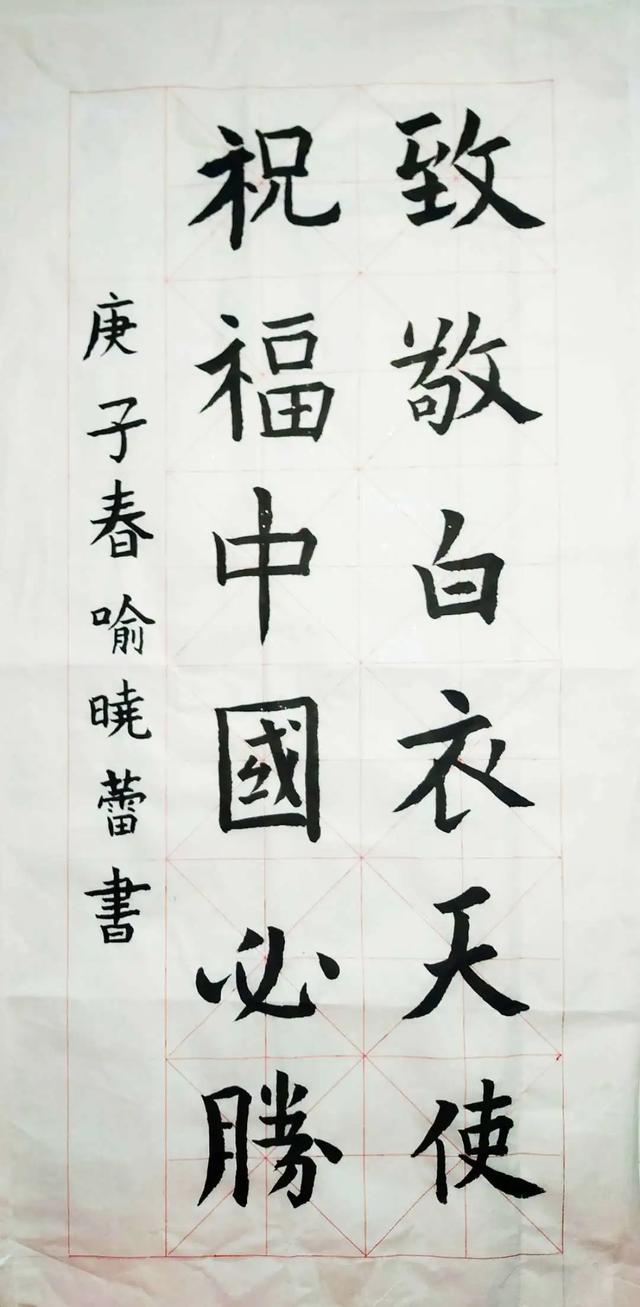 致敬白衣天使
祝福中國必勝
庚子春喻曉蕾書